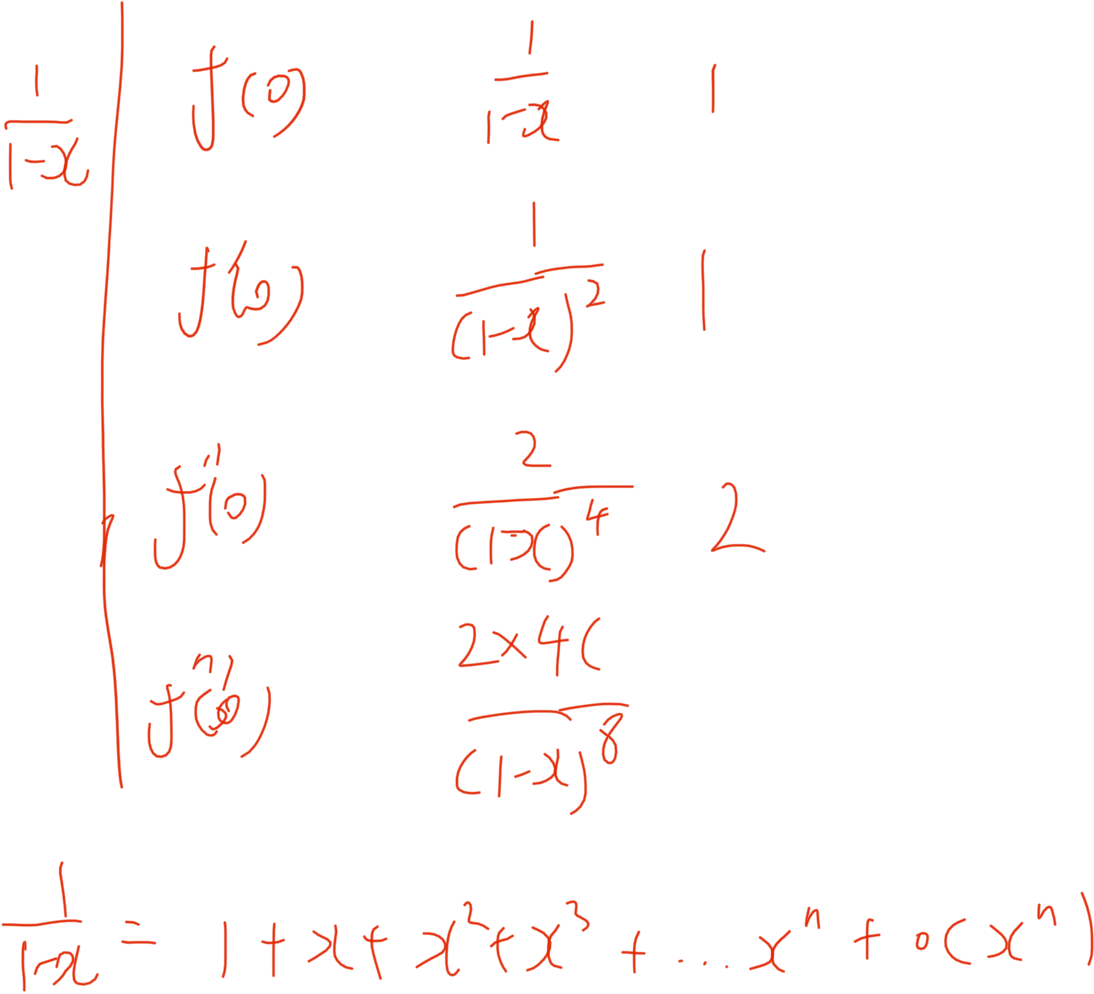 1/(1-x)
f(0) 1/(1-x) 1
f'(0) 1/(1-x)^2 1
f''(0) 2/(1-x)^4 2
2×4(/(1-x)^8
1/(1-x) = 1+x+x^2+x^3+...x^n+o(x^n)